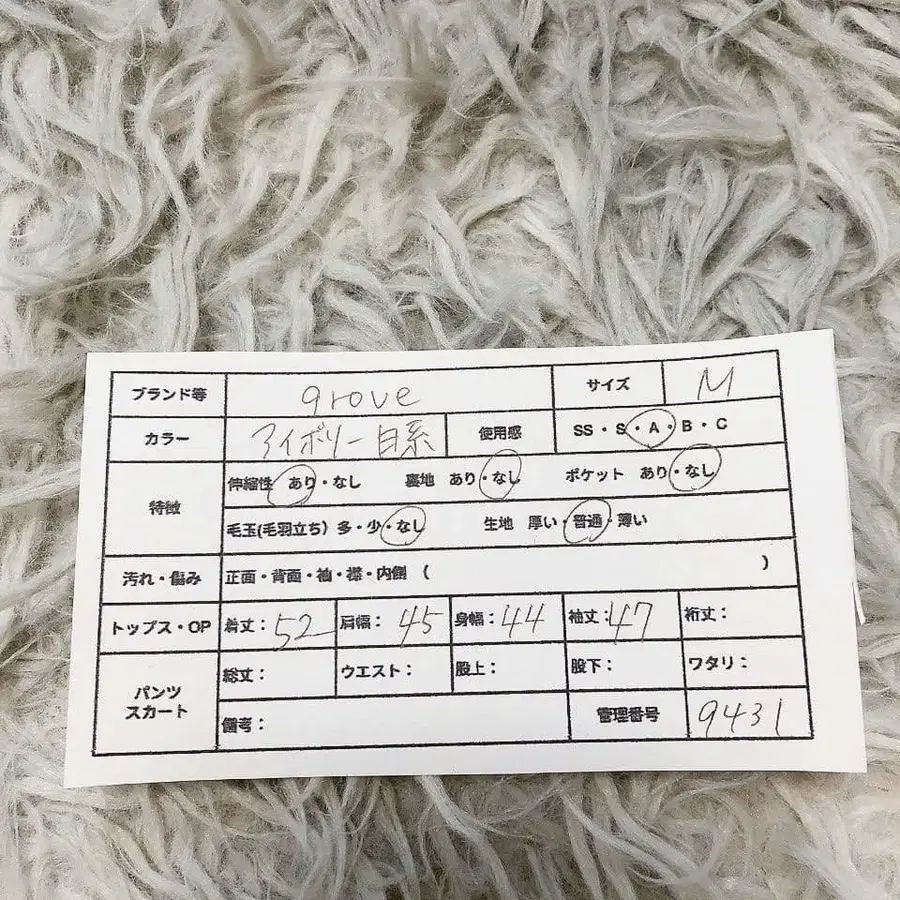 ブランド等 grove サイズ M
カラー アイボリー白系 使用感 SS・S・A・B・C
特徴 伸縮性 あり・なし 裏地 あり・なし ポケット あり・なし
毛玉(毛羽立ち) 多・少・なし 生地 厚い・普通・薄い
汚れ・傷み 正面・背面・袖・襟・内側 ( )
トップス・OP 着丈:52 肩幅:45 身幅:44 袖丈:47 裄丈:
パンツ スカート 総丈: ウエスト: 股上: 股下: ワタリ:
備考: 管理番号 9431